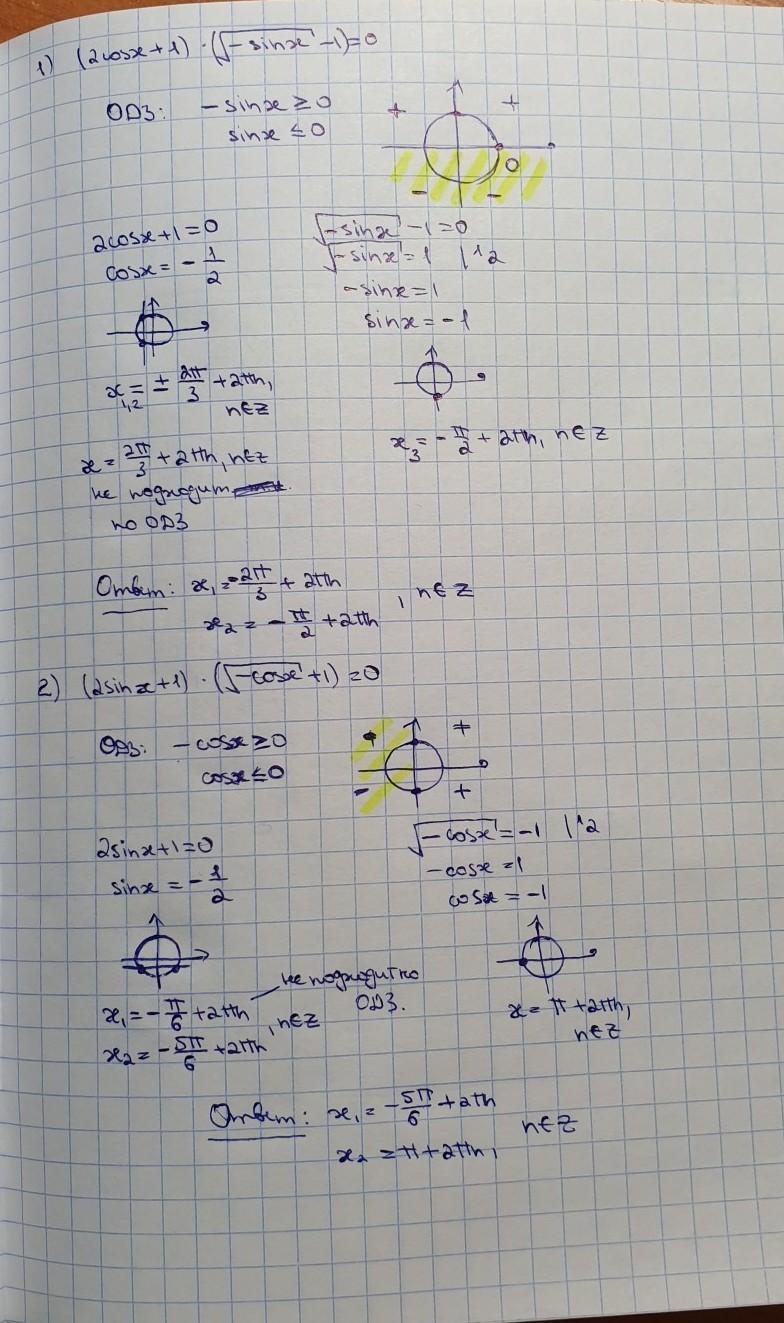 1) (2cosx+1)·(√-sinx -1)=0
ОДЗ: -sinx ≥ 0
sinx ≤ 0
+ +
0
- -
2cosx+1=0
cosx = - 1/2
x1,2 = ± 2π/3 + 2πn,
n∈Z
x = 2π/3 + 2πn, n∈Z
не подходит
по ОДЗ
√-sinx -1=0
√-sinx = 1 |^2
-sinx = 1
sinx = -1
x3 = - π/2 + 2πn, n∈Z
Ответ: x1 = - 2π/3 + 2πn
x2 = - π/2 + 2πn , n∈Z
2) (2sinx+1)·(√-cosx +1)=0
ОДЗ: -cosx ≥ 0
cosx ≤ 0
+
- +
2sinx+1=0
sinx = - 1/2
x1 = - π/6 + 2πn
x2 = - 5π/6 + 2πn , n∈Z
не подходит по
ОДЗ.
√-cosx = -1 |^2
-cosx = 1
cosx = -1
x = π + 2πn,
n∈Z
Ответ: x1 = - 5π/6 + 2πn
x2 = π + 2πn, n∈Z